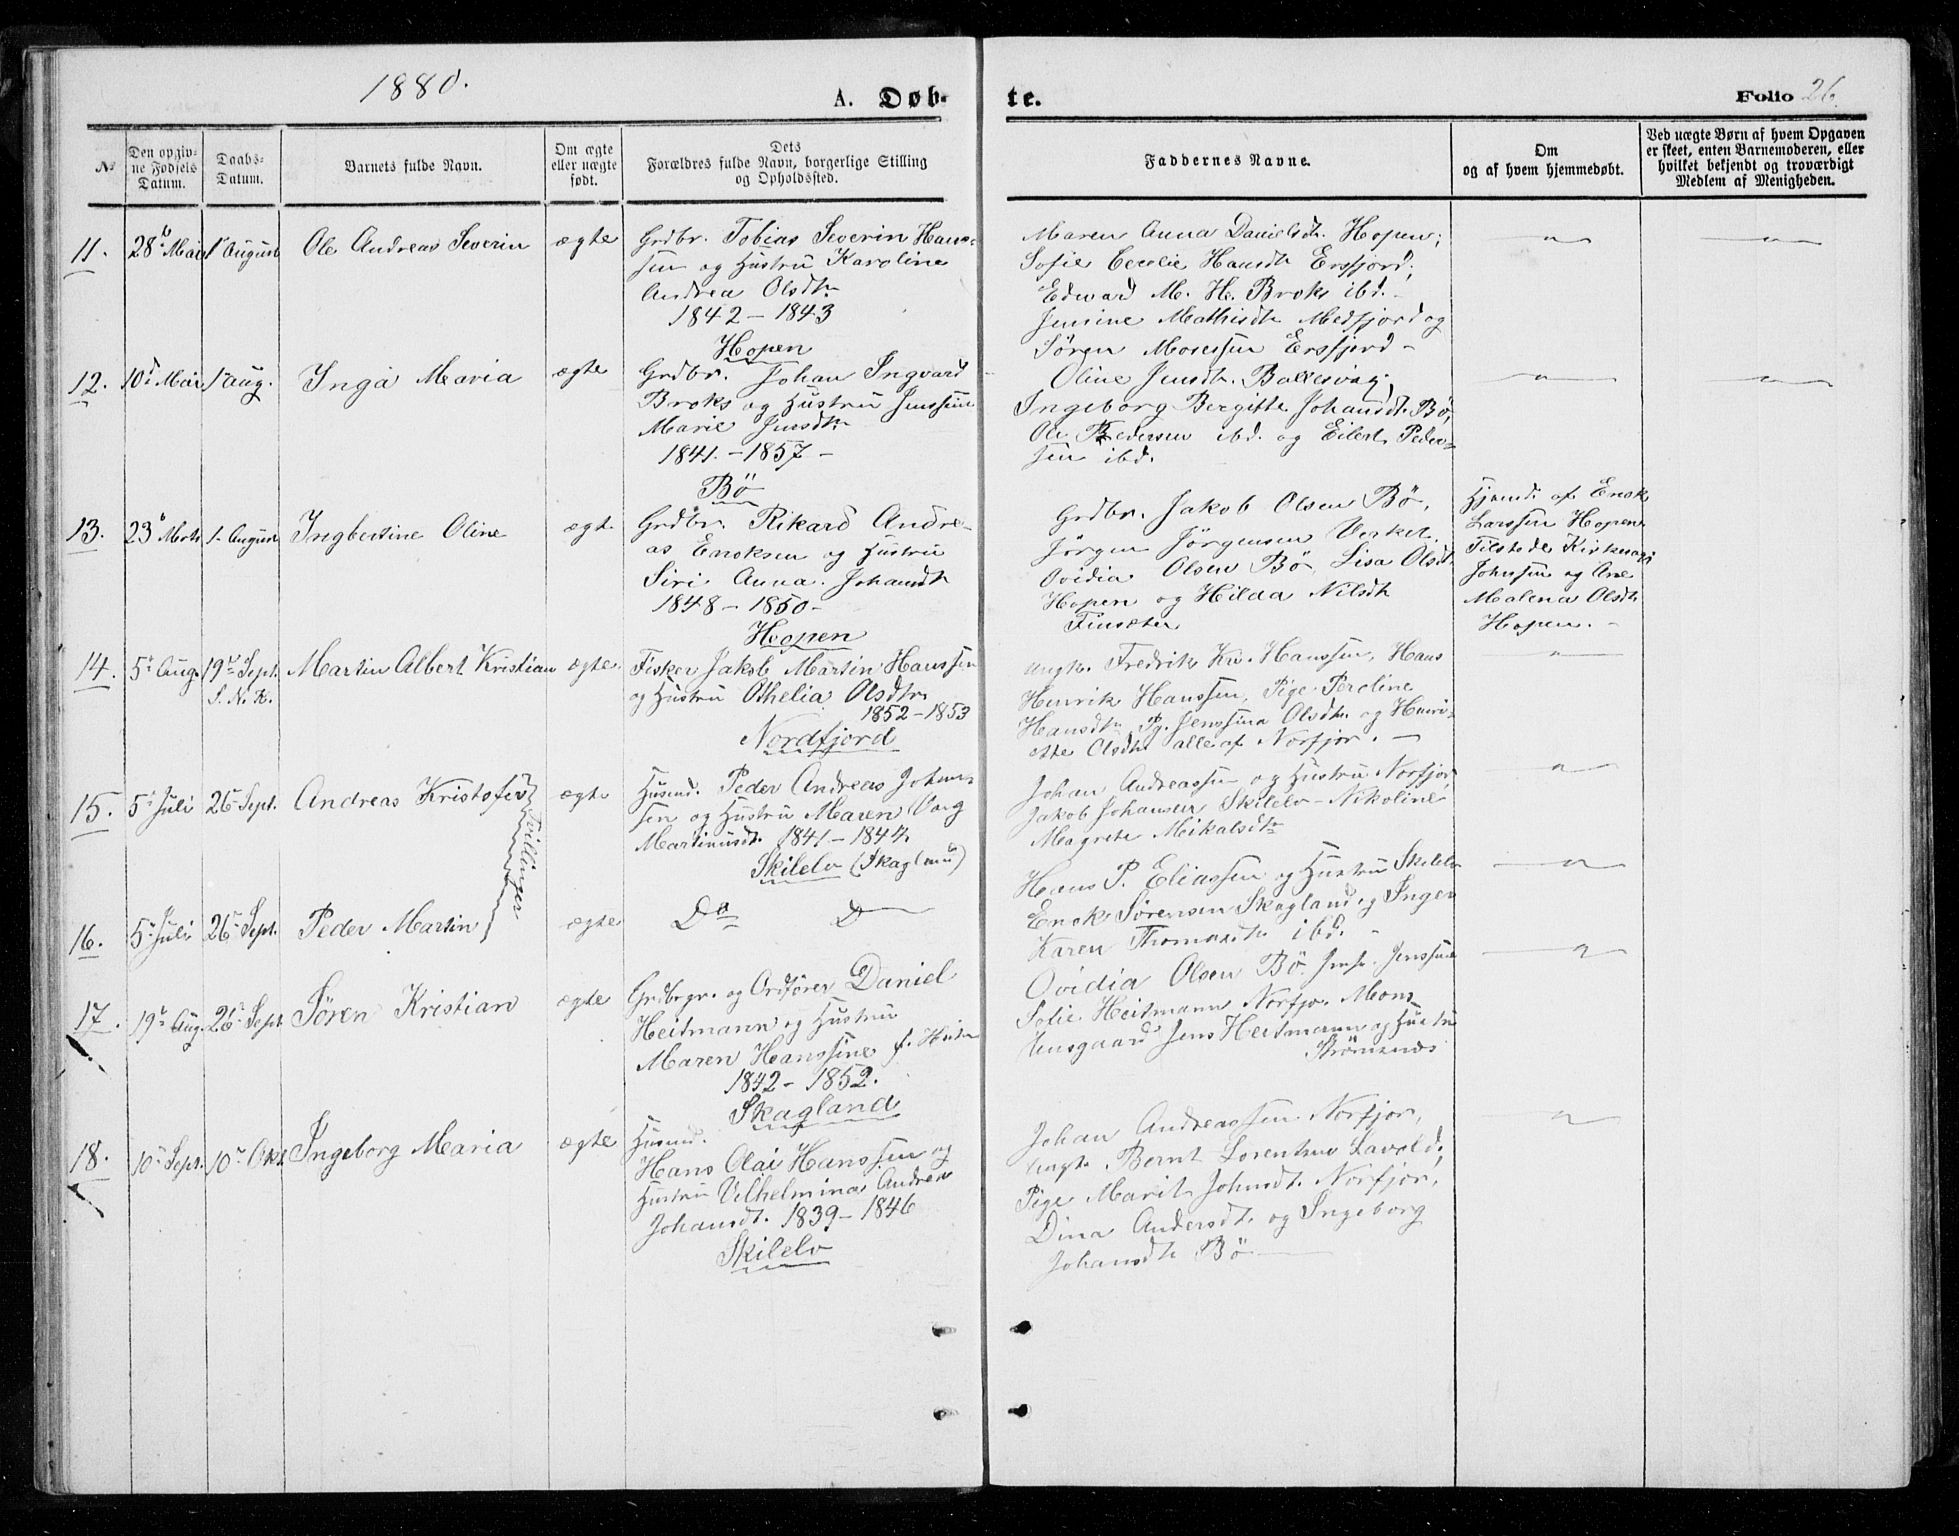 1880.
A. Døb-
te.
Folio 26.
№
Den opgiv-
ne Fødsels
Datum.
Daabs-
Datum.
Barnets fulde Navn.
Om ægte
eller uægte
født.
Dets
Forældres fulde Navn, borgerlige Stilling
og Opholdssted.
Faddernes Navne.
Om
og af hvem hjemmedøbt.
Ved uægte Børn af hvem Opgaven
er skeet, enten Barnemoderen, eller
hvilket bekjendt og troværdigt
Medlem af Menigheden.
11.
28 Mai
1 August
Ole Andreas Severin
ægte
Grdbr. Tobias Severin Hans-
sen og Hustru Karoline
Andrea Olsdtr
1842 - 1843
Hopen
Maren Anna Danielsdt. Hopen;
Sofie Cecelie Hansdt Ersfjord;
Edward M. H. Broks ibd. -
Jensine Mathisdt Medfjord og
Søren Mosessen Ersfjord -
12.
10 Mai
1 Aug.
Inga Maria
ægte
Grdbr. Johan Ingvard
Broks og Hustru Jenssine
Marie Jensdtr
1841. - 1857 -
Bö
Oline Jensdt. Ballesvag;
Ingeborg Bergitte Johansdt. Bö,
Ole Pedersen ibd. og Eilert Peder=
sen ibd.
13.
23 Marts
1. August
Ingbertine Oline
ægt
Grdbr. Rikard Andre-
as Enoksen og Hustru
Siri Anna. Johansdt
1848 - 1850 -
Hopen
Grdbr. Jakob Olsen Bö,
Jörgen Jörgensen Verket.
Ovidia Olsen Bö, Lisa Olsdt
Hopen og Hilda Nilsdt
Finsæter
Hjemd. af Enok
Larssen Hopen
Tilstede Kirkesagr
Johnsen og Ane
Malena Olsdt.
Hopen. -
14.
5 Aug.
19 Sept.
S. N. K.
Martin Albert Kristian
ægte
Fisker Jakob Martin Hanssen
og Hustru Othelia Olsdtr
1852 - 1853
Nordfjord
Ungk. Fredrik Kr. Hanssen, Hans
Henrik Hanssen, Pige Peroline
Hansdt. Pg. Jenssina Olsdt. og Henri-
ette Olsdt alle af Norfjor. -
15.
5 Juli
26 Sept.
Andreas Kristofer
Tvillinger
ægte
Husmd. Peder Andreas Johan-
sen og Hustru Maren
Martinusdt. 1841 - 1844
Skilelv (Skagland)
Johan Andreassen og Hustru Norfjor,
Jakob Johansen Skilelv - Nikoline
Magrete Mikalsdtr
16.
5 Juli
26 Sept.
Peder Martin
ægte
Do D
Hans P. Eliassen og Hustru Skilelv
Enok Sörensen Skagland og Inger
Karen Thomasdt. ibd. -
17.
19 Aug.
26 Sept
Sören Kristian
ægte
Grdbrgr. og Ordfører Daniel
Heitmann og Hustru
Maren Hanssine f.
1842 - 1852.
Skagland
Ovidia Olsen Bö Jmfr. Jenssine
Sofie Heitmann Norfjor. Mons
Jens Heitmann og Hustru
Strömsnes
18.
10 Sept.
10 Okt.
Ingeborg Maria
ægte
Husmd.
Hans Olai Hanssen og
Hustru Vilhelmina Andrea
Johansdt. 1839 - 1846
Skilelv
Johan Andreassen Norfjor,
Ungk. Bernt Lorentsen Lavold;
Pige Marit Johnsdt. Norfjor,
Dina Andersdt. og Ingeborg
Johansdt Bö